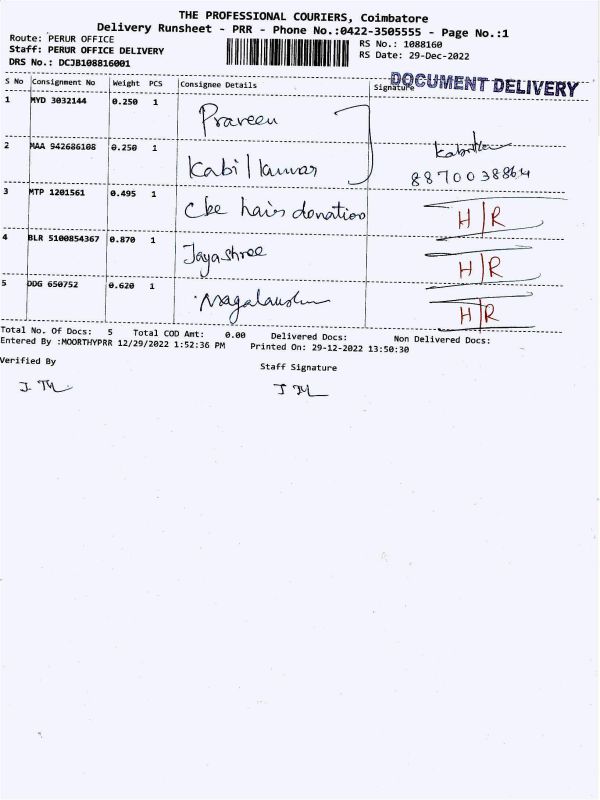 THE PROFESSIONAL COURIERS, Coimbatore
Delivery Runsheet - PRR - Phone No.:0422-3505555 - Page No.:1
Route: PERUR OFFICE
RS No.: 1088160
Staff: PERUR OFFICE DELIVERY
RS Date: 29-Dec-2022
DRS No.: DCJB108816001
DOCUMENT DELIVERY
S No Consignment No Weight PCS Consignee Details Signature
1 MYD 3032144 0.250 1 Praveen
2 MAA 942686108 0.250 1 Kabilkumar
8870038864
3 MTP 1201561 0.495 1 Cbe hair donation H/R
4 BLR 5100854367 0.870 1 Jayashree H/R
5 DDG 650752 0.620 1 H/R
Total No. Of Docs: 5 Total COD Amt: 0.00 Delivered Docs: Non Delivered Docs:
Entered By :MOORTHYPRR 12/29/2022 1:52:36 PM Printed On: 29-12-2022 13:50:30
Verified By Staff Signature